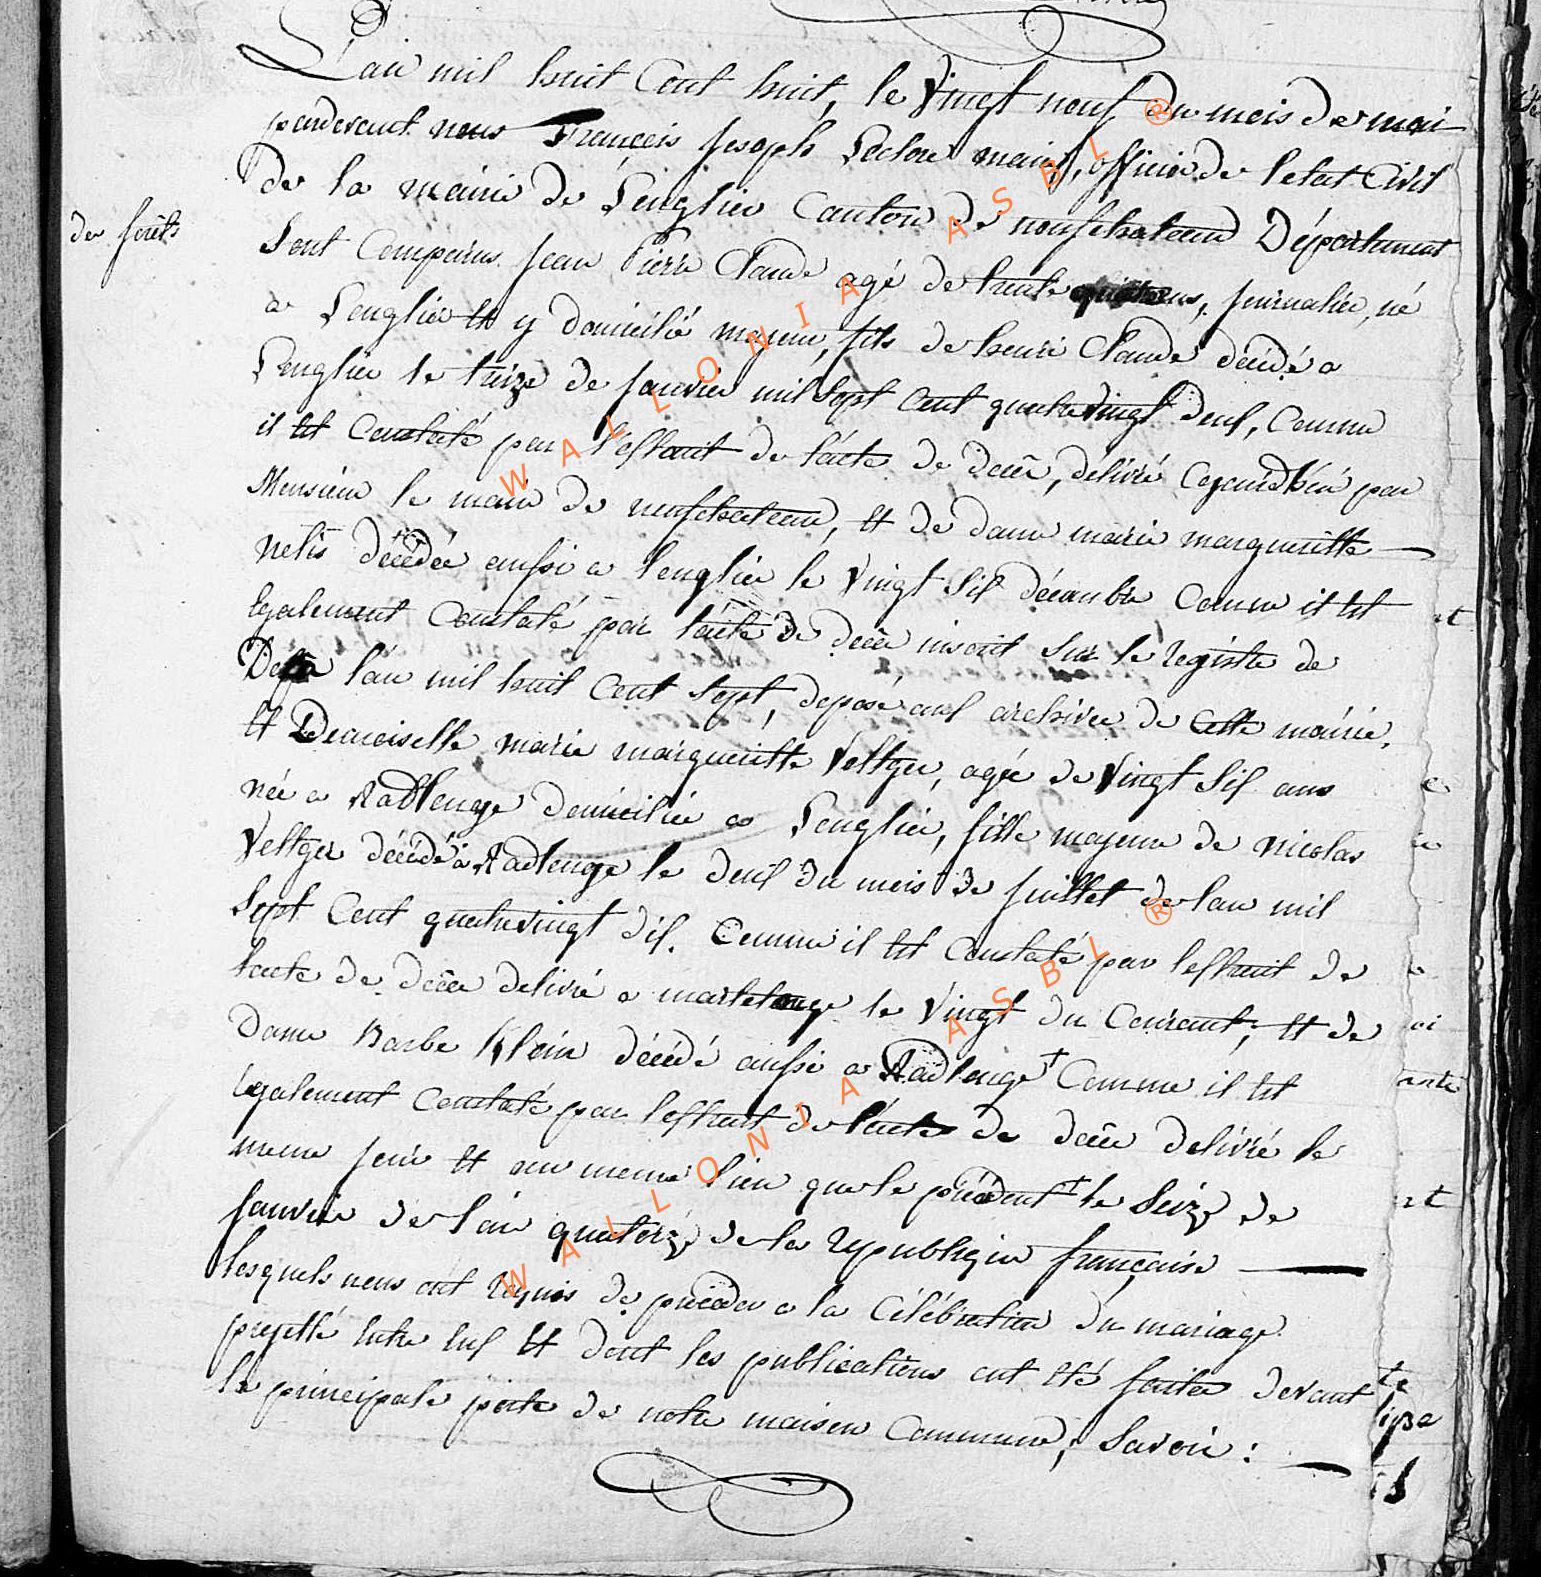 L'an mil huit Cent huit, le Vingt neuf du mois de mai
pardevant nous François Joseph Leclere maire, officier de letat Civil
de la mairie de Lenglier Canton de neufchateau Département
des forêts
Sont Comparus Jean Pierre Claude agé de trente ans, journalier, né
a Lenglier et y domicilié majeur, fils de henri Claude décédé a
Lenglier le treize de janvier mil Sept Cent quatrevingt deux, Comme
il est Constaté par l'extrait de l'acte de decès, délivré Cejourdhui par
Monsieur le maire de neufchateau, et de dame marie margueritte
Nelis décédée aussi a lenglier le Vingt Six décembre Comme il est
Egalement Constaté par l'acte de decès inscrit sur le registre de
l'an mil huit Cent Sept, deposé aux archives de Cette mairie,
et Demoiselle marie margueritte Veltger, agée de Vingt Six ans
née a Radlenge domiciliée a Lenglier, fille majeure de nicolas
Veltger décédé a Radlenge le deux du mois de Juillet de lan mil
Sept Cent quatrevingt dix. Comme il est Constaté par lextrait de
lacte de decès delivré a martelange le Vingt du Courant, et de
Dame Barbe Klein décédé aussi a Radlenge + Comme il est
également Constaté par lextrait de l'acte de decès delivré le
meme jour et au meme lieu que le précédent + le Seize de
janvier de l'an quatorze de la republique française
lesquels nous ont requis de procéder a la Célébration du mariage
projetté entre eux et dont les publications ont été faites devant
la principale porte de notre maison Commune, Savoir :
WALLONIA ASBL ®
WALLONIA ASBL ®